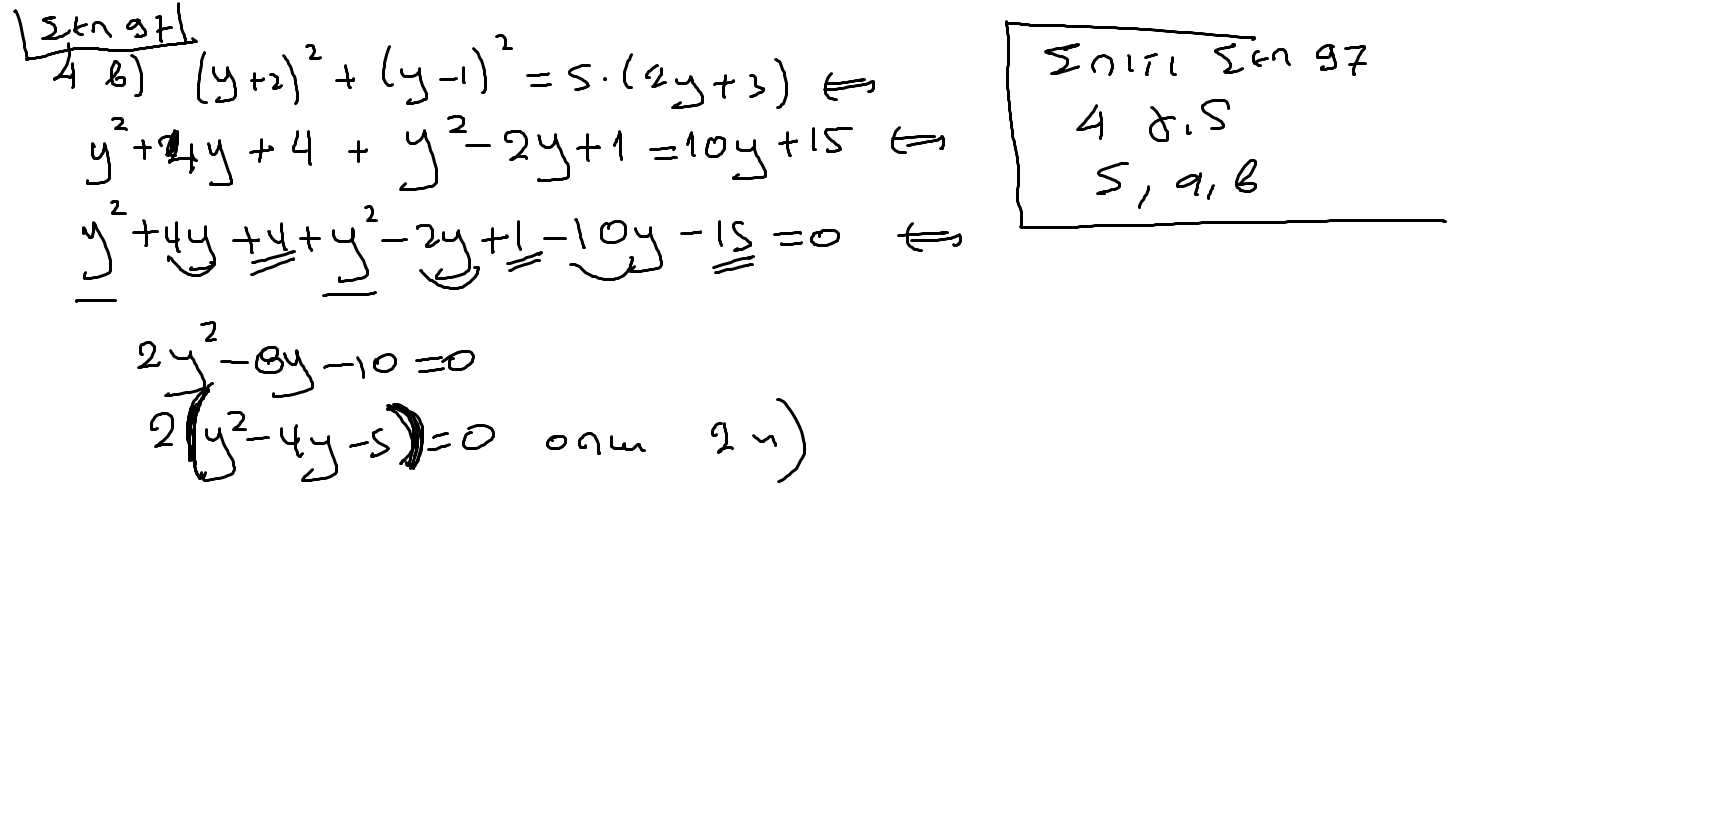 Σελ 97
4 β) (y+2)² + (y-1)² = 5·(2y+3) ⟺
y² + 4y + 4 + y² - 2y + 1 = 10y + 15 ⟺
y² + 4y + 4 + y² - 2y + 1 - 10y - 15 = 0 ⟺
2y² - 8y - 10 = 0
2(y² - 4y - 5) = 0 οπως 2
Σπιτι Σελ 97
4 γ,δ
5, α, β